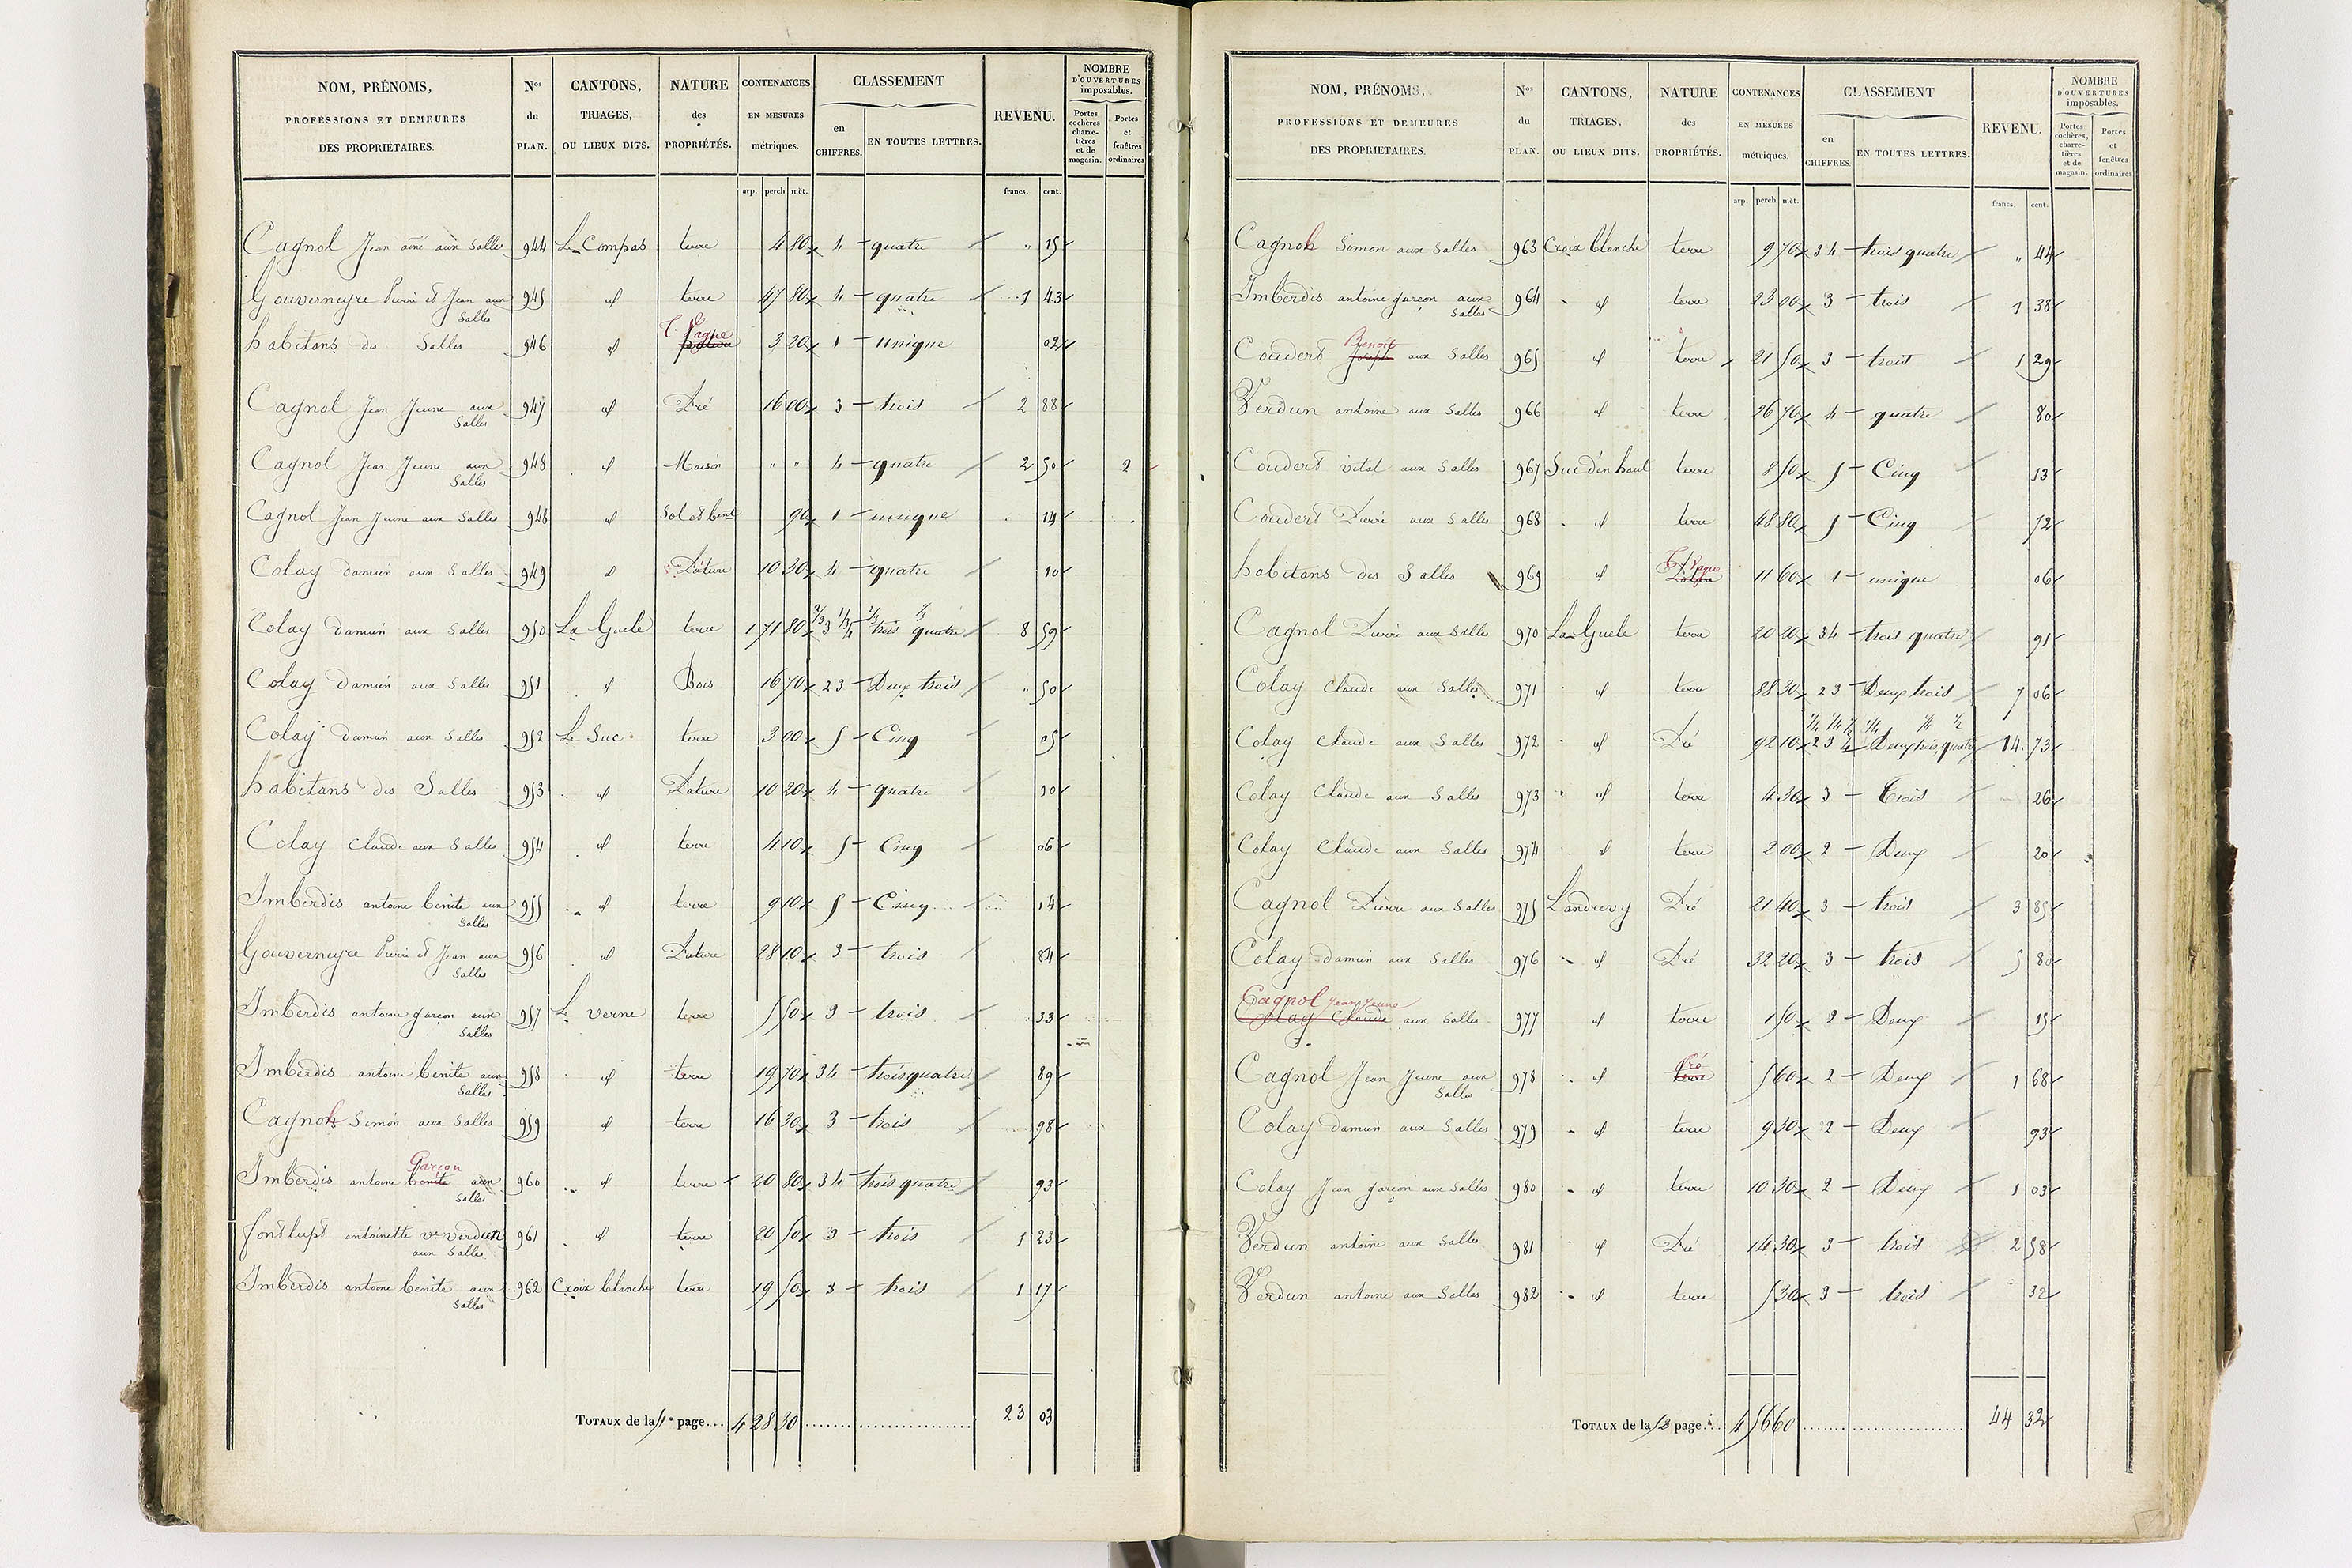 NOM, PRÉNOMS, PROFESSIONS ET DEMEURES DES PROPRIÉTAIRES. Nos du PLAN. CANTONS, TRIAGES, OU LIEUX DITS. NATURE des PROPRIÉTÉS. CONTENANCES EN MESURES métriques. CLASSEMENT en CHIFFRES. EN TOUTES LETTRES. REVENU. NOMBRE D'OUVERTURES imposables. Portes cochères, charretières et de magasin. Portes et fenêtres ordinaires
arp. perch mèt. francs. cent.
Cagnol Jean ainé aux Salles 944 Le Compas terre 4 80 4 quatre " 15
Gouverneyre Pierre et Jean aux Salles 945 id 47 80 terre 4 quatre 1 43
habitans des Salles 946 id T. Vague 3 20 1 unique 02
Cagnol Jean Jeune aux Salles 947 id Pré 16 00 3 trois 2 88
Cagnol Jean Jeune aux Salles 948 id Maison " " 4 quatre 2 50 2
Cagnol Jean Jeune aux Salles 948 id Sol et bent 90 1 unique 14
Colay damien aux Salles 949 id Pâture 10 30 4 quatre 10
Colay damien aux Salles 950 La Guele terre 1 71 80 2/3 3 1/3 4 2/3 trois 1/3 quatre 8 59
Colay damien aux Salles 951 id Bois 16 70 2 3 Deux trois " 50
Colay damien aux Salles 952 Le Suc terre 3 00 5 Cinq 05
habitans des Salles 953 id Pature 10 20 4 quatre 10
Colay Claude aux Salles 954 id terre 4 10 5 Cinq 06
Imberdis antoine benite aux Salles 955 id terre 9 10 5 Cinq 14
Gouverneyre Pierre et Jean aux Salles 956 id Pature 28 10 3 trois 84
Imberdis antoine garçon aux Salles 957 Le verne terre 5 50 3 trois 33
Imberdis antoine benite aux Salles 958 id terre 19 70 3 4 trois quatre 89
Cagnol Simon aux Salles 959 id terre 16 30 3 trois 98
Imberdis antoine benite Garçon aux Salles 960 id terre 20 80 3 4 trois quatre 93
fontlupt antoinette ve verdun aux Salles 961 id terre 20 50 3 trois 1 23
Imberdis antoine benite aux Salles 962 Croix blanche terre 19 50 3 trois 1 17
TOTAUX de la 51e page... 4 28 30 23 03
NOM, PRÉNOMS, PROFESSIONS ET DEMEURES DES PROPRIÉTAIRES. Nos du PLAN. CANTONS, TRIAGES, OU LIEUX DITS. NATURE des PROPRIÉTÉS. CONTENANCES EN MESURES métriques. CLASSEMENT en CHIFFRES. EN TOUTES LETTRES. REVENU. NOMBRE D'OUVERTURES imposables. Portes cochères, charretières et de magasin. Portes et fenêtres ordinaires
arp. perch mèt. francs. cent.
Cagnol Simon aux Salles 963 Croix blanche terre 9 70 3 4 trois quatre " 44
Imberdis antoine garçon aux Salles 964 id terre 23 00 3 trois 1 38
Coudert Joseph Benoit aux Salles 965 id terre 21 50 3 trois 1 29
Verdun antoine aux Salles 966 id terre 26 70 4 quatre 80
Coudert vital aux Salles 967 Suc d'en haut terre 8 50 5 Cinq 13
Coudert Pierre aux Salles 968 id terre 48 80 5 Cinq 72
habitans des Salles 969 id T. Vague 11 60 1 unique 06
Cagnol Pierre aux Salles 970 La Guele terre 20 20 3 4 trois quatre 91
Colay Claude aux Salles 971 id terre 88 30 2 3 Deux trois 7 06
Colay Claude aux Salles 972 id Pré 92 10 1/4 2 1/4 3 1/2 4 1/4 Deux 1/4 trois 1/2 quatre 14 73
Colay Claude aux Salles 973 id terre 4 30 3 Trois 26
Colay Claude aux Salles 974 id terre 2 00 2 Deux 20
Cagnol Pierre aux Salles 975 Landrevy Pré 21 40 3 trois 3 85
Colay damien aux Salles 976 id Pré 32 20 3 trois 5 80
Cagnol Jean Jeune Colay Claude aux Salles 977 id terre 1 50 2 Deux 15
Cagnol Jean Jeune aux Salles 978 id terre Pré 5 60 2 Deux 1 68
Colay damien aux Salles 979 id terre 9 30 2 Deux 93
Colay Jean garçon aux Salles 980 id terre 10 30 2 Deux 1 03
Verdun antoine aux Salles 981 id Pré 14 30 3 trois 2 58
Verdun antoine aux Salles 982 id terre 5 30 3 trois 32
TOTAUX de la 52 page... 4 56 60 44 32